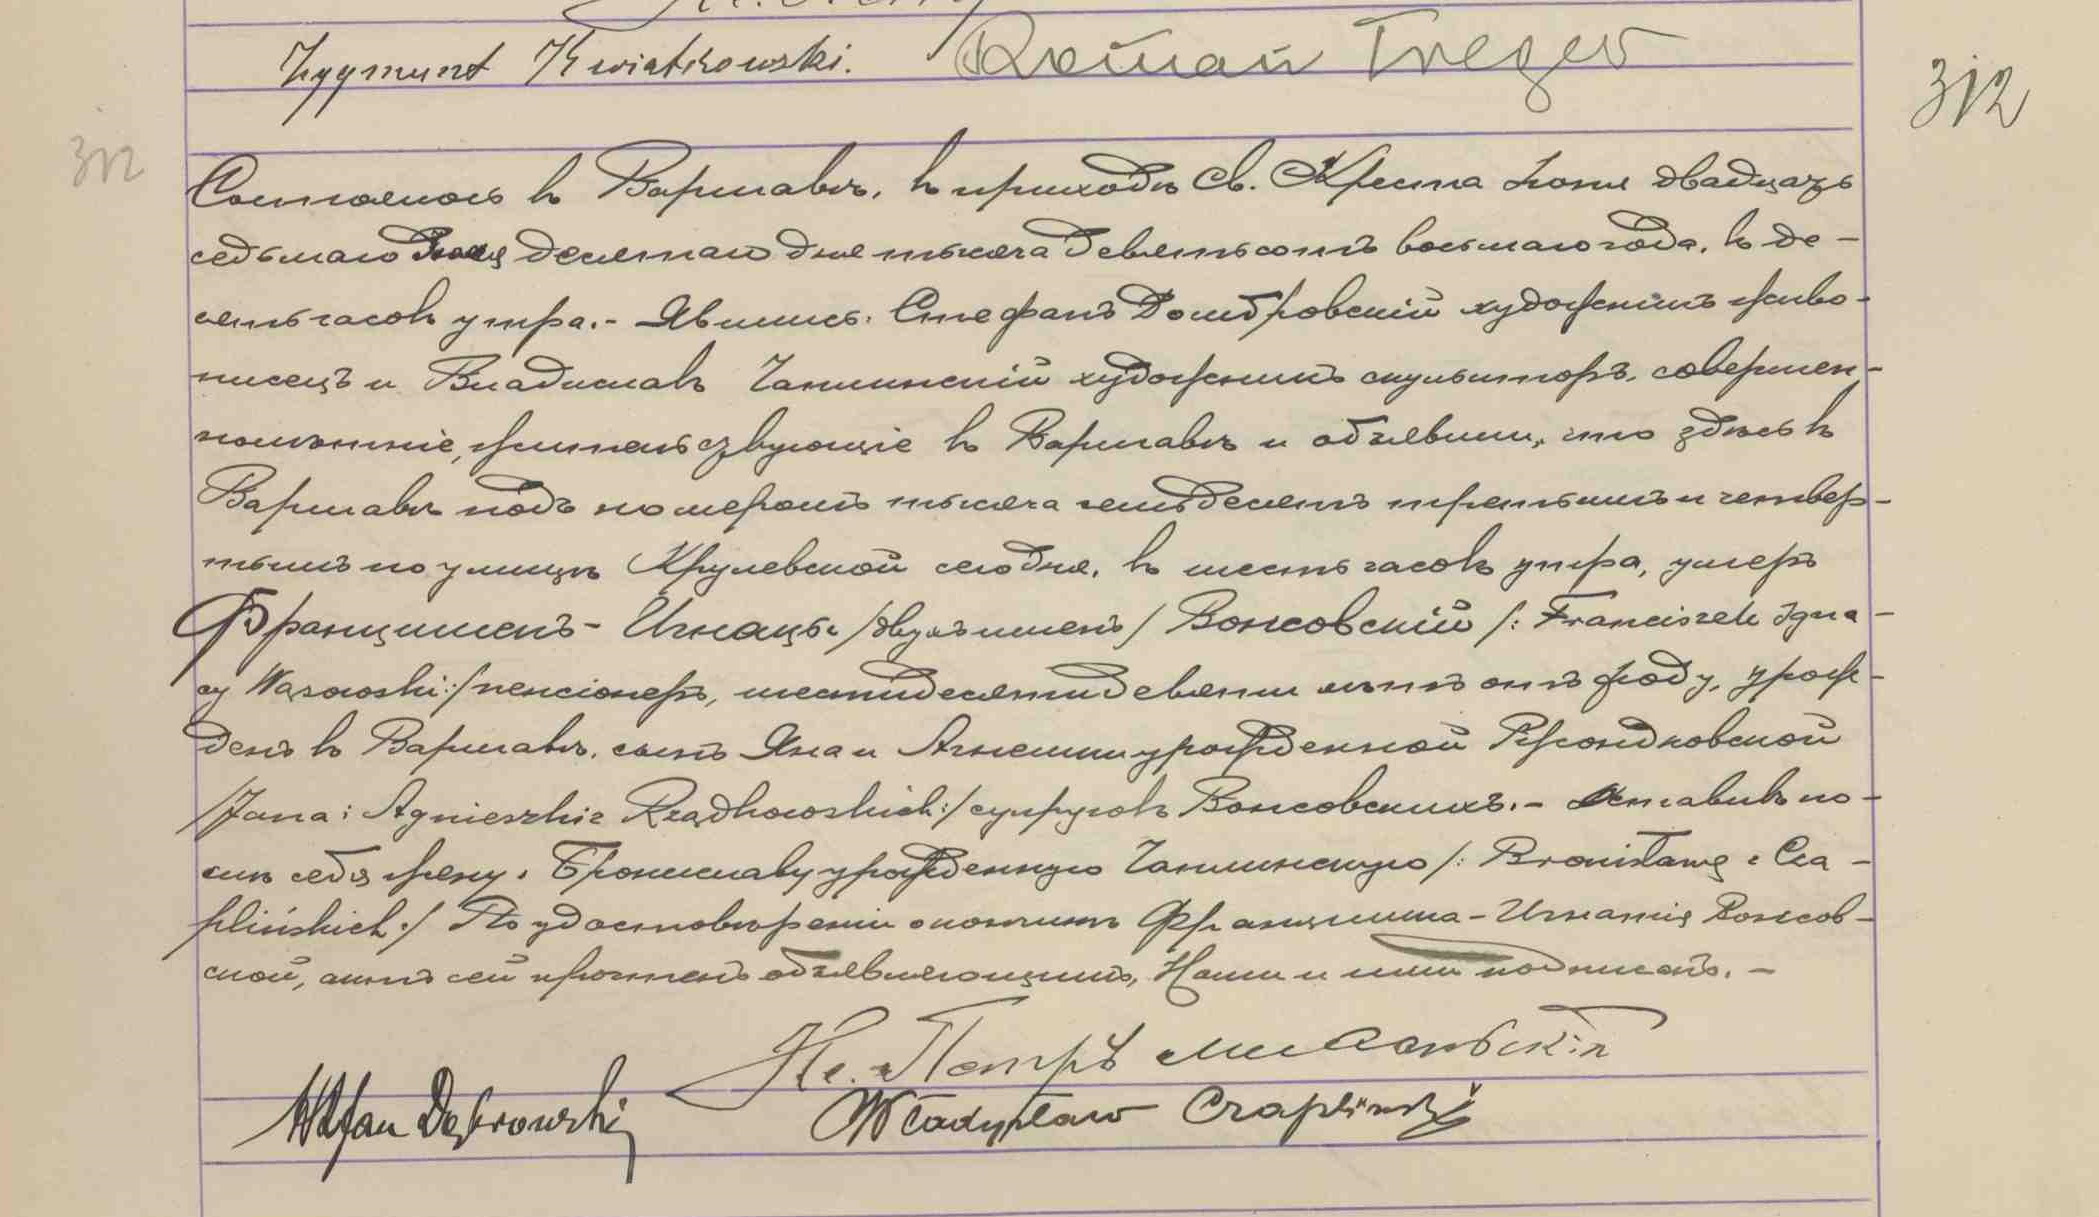 Zygmunt Kwiatkowski. Roman Treger
312
312
Состоялось въ Варшавѣ, въ приходѣ Св. Креста Іюня двадцать
седьмаго Іюля десятаго дня тысяча девятьсотъ восьмаго года, въ де-
сять часовъ утра.- Явились: Стефанъ Домбровскій художникъ живо-
писецъ и Владиславъ Чаплинскій художникъ скульпторъ, совершен-
нолѣтніе, жительствующіе въ Варшавѣ и объявили, что здѣсь въ
Варшавѣ подъ номеромъ тысяча семьдесятъ третьимъ и четвер-
тымъ по улицѣ Крулевской сегодня, въ шесть часовъ утра, умеръ
Францишекъ-Игнацы /двухъ именъ/ Вонсовскій /: Franciszek Igna-
cy Wąsowski:/ пенсіонеръ, шестидесятидевяти лѣтъ отъ роду, урож-
денъ въ Варшавѣ, сынъ Яна и Агнешки урожденной Ржондковской
/Jana i Agnieszki z Rządkowskich:/ супруговъ Вонсовскихъ.- Оставивъ по-
слѣ себя жену, Брониславу урожденную Чаплинскую /: Bronisławę z Cza-
plińskich:/ По удостовѣреніи о кончинѣ Францишка-Игнатія Вонсов-
скаго, актъ сей прочтенъ объявляющимъ, Нами и ими подписанъ.-
Кс. Петръ
Stefan Dąbrowski Władysław Czapliński